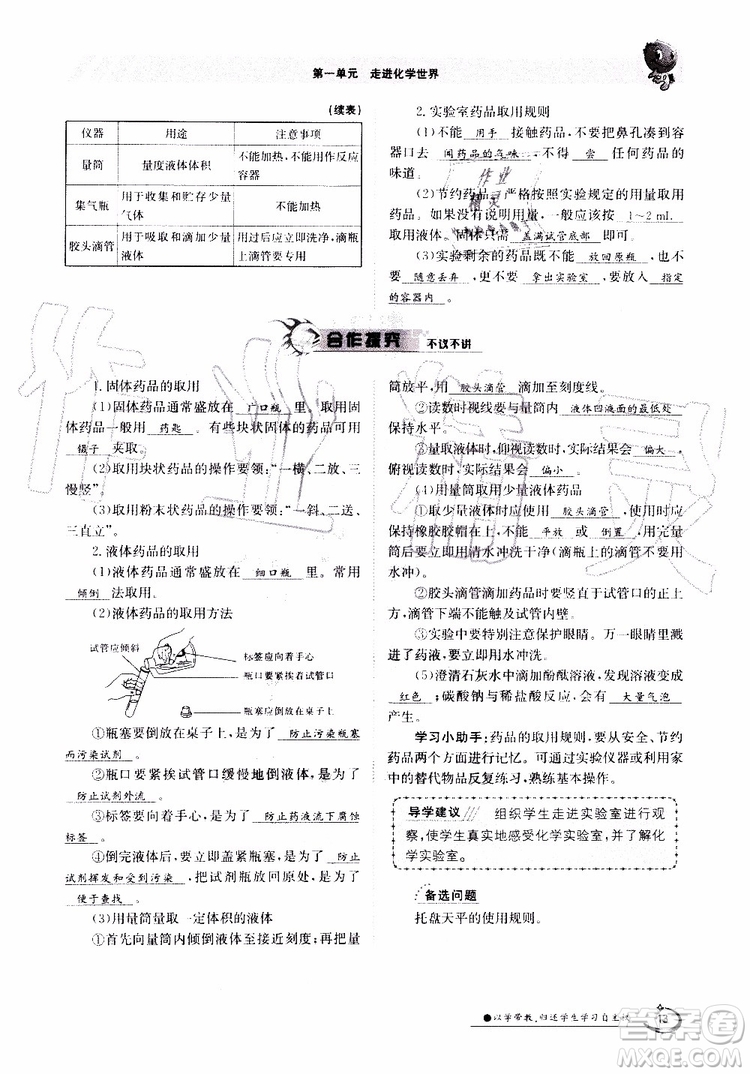 第一单元 走进化学世界
(续表)
仪器 用途 注意事项
量筒 量度液体体积 不能加热、不能用作反应
容器
集气瓶 用于收集和贮存少量
气体 不能加热
胶头滴管 用于吸取和滴加少量
液体 用过后应立即洗净,滴瓶
上滴管要专用
2. 实验室药品取用规则
(1)不能 用手 接触药品,不要把鼻孔凑到容
器口去 闻药品的气味 ,不得 尝 任何药品的
味道。
(2)节约药品,严格按照实验规定的用量取用
药品。如果没有说明用量,一般应该按 1~2 mL
取用液体。固体只需 盖满试管底部 。
(3)实验剩余的药品不能 放回原瓶 ,也不
要 随意丢弃 ,更不要 拿出实验室 ,要放入 指定
的容器内 。
合作探究 不议不讲
1. 固体药品的取用
(1)固体药品通常盛放在 广口瓶 里。取用固
体药品一般用 药匙 。有些块状药品可用
镊子 夹取。
(2)取用块状药品的操作要领:“一横、二放、三
慢竖”。
(3)取用粉末状药品的操作要领:“一斜、二送、
三直立”。
2. 液体药品的取用
(1)液体药品通常盛放在 细口瓶 里。常用
倾倒 法取用。
(2)液体药品的取用方法
试管应倾斜
标签应向着手心
瓶口要紧挨着试管口
瓶塞应倒放在桌子上
①瓶塞要倒放在桌子上,是为了 防止污染瓶塞
而污染试剂 。
②瓶口要紧挨试管口缓慢地倒液体,是为了
防止试剂外流 。
③标签要向着手心,是为了 防止药液流下腐蚀
标签 。
④倒完液体后要立即盖紧瓶塞,是为了 防止
试剂挥发和受到污染 ,把试剂瓶放回原处,是为了
便于查找 。
(3)用量筒量取一定体积的液体
①首先向量筒内倾倒液体至接近刻度;再把量
筒放平,用 胶头滴管 滴加至刻度线。
②读数时视线要与量筒内 液体凹液面的最低处
保持水平。
③量取液体时,仰视读数时,实际结果 偏大 ,
俯视读数时,实际结果 偏小 。
(4)用量筒取用少量液体药品
①取少量液体时应使用 胶头滴管 ,使用时应
保持橡胶胶帽在上,不能 平放 或 倒置 ,用完量
筒后要立即用清水冲洗干净(滴瓶上的滴管不要用
水冲)。
②胶头滴管滴加药品时要竖直于试管口的正上
方,滴管下端不能触及试管内壁。
③实验中要特别注意保护眼睛。万一眼里溅
进了药液,要立即用水冲洗。
(5)澄清石灰水中滴加酚酞溶液,发现溶液变成
红色 ;碳酸钠与稀盐酸反应,会有 大量气泡
产生。
学习小助手:药品的取用规则,要从安全、节约
药品两个方面进行记忆。可通过实验仪器或利用家
中的替代物品反复练习,熟练基本操作。
导学建议 组织学生走进实验室进行观
察,使学生真实地感受化学实验室,并了解化
学实验室。
备选问题
托盘天平的使用规则。
●以学带教,归还学生学习自主权
13
作业精灵
作业
精灵
答案圈
MXQE.COM